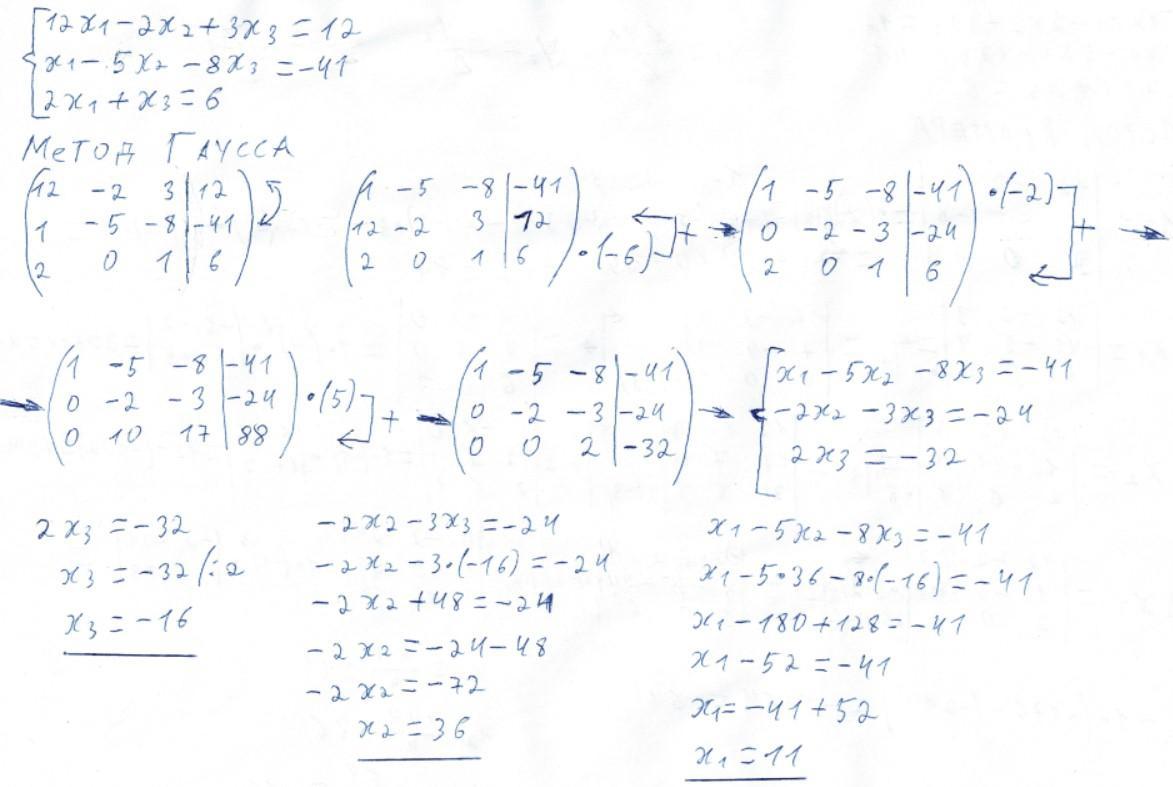 12x₁-2x₂+3x₃=12
x₁-5x₂-8x₃=-41
2x₁+x₃=6
МЕТОД ГАУССА
12 -2 3 | 12
1 -5 -8 | -41
2 0 1 | 6
1 -5 -8 | -41
12 -2 3 | 12
2 0 1 | 6 •(-6) +
1 -5 -8 | -41 •(-2)
0 -2 -3 | -24 +
2 0 1 | 6
1 -5 -8 | -41
0 -2 -3 | -24 •(5)
0 10 17 | 88 +
1 -5 -8 | -41
0 -2 -3 | -24
0 0 2 | -32
x₁-5x₂-8x₃=-41
-2x₂-3x₃=-24
2x₃=-32
2x₃=-32
x₃=-32/:2
x₃=-16
-2x₂-3x₃=-24
-2x₂-3•(-16)=-24
-2x₂+48=-24
-2x₂=-24-48
-2x₂=-72
x₂=36
x₁-5x₂-8x₃=-41
x₁-5•36-8•(-16)=-41
x₁-180+128=-41
x₁-52=-41
x₁=-41+52
x₁=11